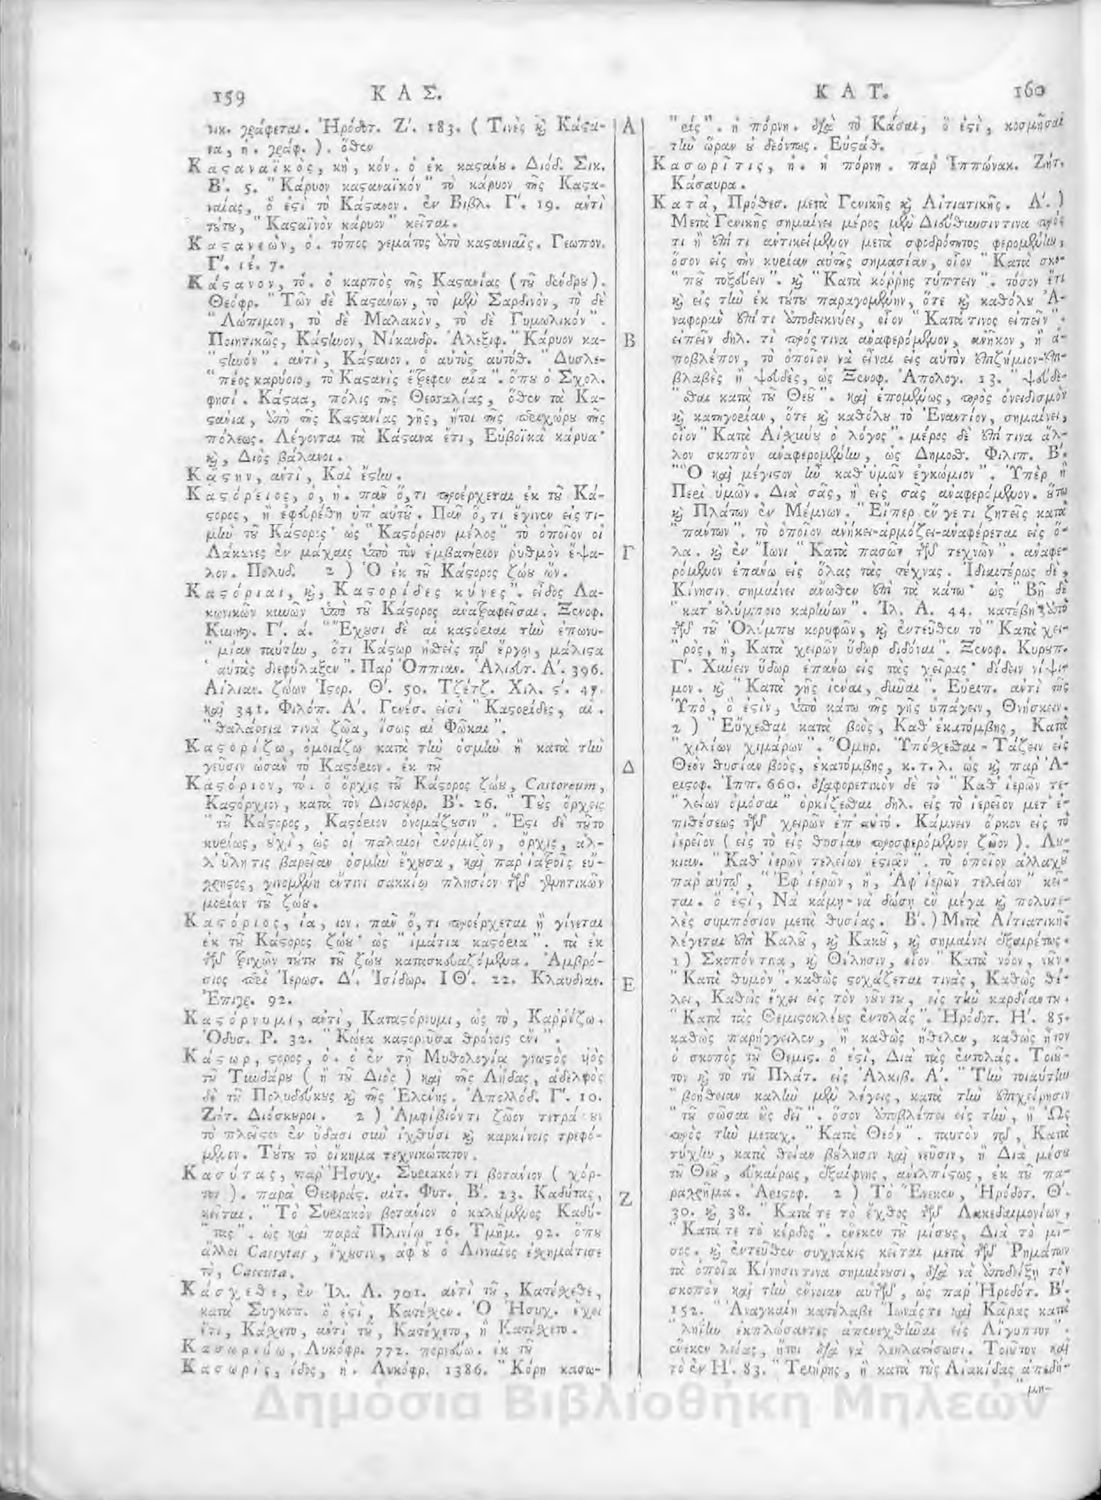 159 ΚΑΣ.
νικ. γράφεται. Ἡρόδοτ. Ζ΄. 183. ( Τινὲς καὶ Κάστα-
να, η. γράφ. ). ὅθεν
Κασταναϊκὸς, κὴ, κόν. ὁ ἐκ καστάνου. Διόδ. Σικ.
Β΄. 5. "Κάρυον κασταναϊκόν" τὸ κάρυον τῆς Καστα-
ναίας, ὅ ἐστι τὸ Κάστανον. ἐν Βιβλ. Γ΄. 19. αὐτὶ
τούτου, "Κασταϊνὸν κάρυον" κεῖται.
Καστανεὼν, ὁ. τόπος γεμάτος ὑπὸ καστανιαῖς. Γεωπον.
Γ΄. ιέ. 7.
Κάστανον, τό. ὁ καρπὸς τῆς Καστανίας (τοῦ δένδρου).
Θεόφρ. "Τῶν δὲ Καστάνων, τὸ μὲν Σαρδινὸν, τὸ δὲ
"Λώπιμον, τὸ δὲ Μαλακὸν, τὸ δὲ Γυμωλικόν".
Ποιητικῶς, Κάστηνον, Νίκανδρ. Ἀλεξιφ. "Κάρυον κα-
"στηνόν". αὐτὶ, Κάστανον. ὁ αὐτὸς αὐτόθ. "Δυσλε-
"πέος καρύοιο, τὸ Καστανὶς ἔτρεφεν αἶα". ὅπου ὁ Σχολ.
φησί. Κάσταα, πόλις τῆς Θεσσαλίας, ὅθεν τὰ Κά-
στανα, ὑπὸ τῆς Καστανίας γῆς, ἤτοι τῆς περιχώρου τῆς
πόλεως. Λέγονται τὰ Κάστανα ἔτι, Εὐβοϊκὰ κάρυα·
καὶ, Διὸς βάλανοι.
Κᾄστην, αὐτὶ, Καὶ ἔστην.
Καστόρειος, ὁ, ἡ. πᾶν ὅ,τι προέρχεται ἐκ τοῦ Κά-
στορος, ἢ ἐφευρέθη ὑπ' αὐτοῦ. Πᾶν ὅ,τι ἔγινεν εἰς τι-
μὴν τοῦ Κάστορος· ὡς "Καστόρειον μέλος" τὸ ὁποῖον οἱ
Λάκωνες ἐν μάχαις ὑπὸ τὸν ἐμβατήριον ῥυθμὸν ἔψα-
λον. Πολυδ. 2 ) Ὁ ἐκ τοῦ Κάστορος ζώου ὤν.
Καστόριαι, καὶ, Καστορίδες κύνες". εἶδος Λα-
κωνικῶν κυνῶν ὑπὸ τοῦ Κάστορος ἀναστραφεῖσαι. Ξενοφ.
Κυνηγ. Γ΄. ά. "Ἔχουσι δὲ αἱ καστόρειαι τὴν ἐπωνυ-
"μίαν ταύτην, ὅτι Κάστωρ ἡσθεὶς τῷ ἔργῳ, μάλιστα
"αὐτὰς διεφύλαξεν". Παρ' Ὀππιαν. Ἁλιευτ. Α΄. 396.
Αἰλιαν. ζώων Ἱστορ. Θ΄. 50. Τζέτζ. Χιλ. ς΄. 47.
καὶ 341. Φιλόπ. Α΄. Γενέσ. εἰσὶ "Καστορίδες, αἱ.
"θαλάσσια τινὰ ζῶα, ἴσως αἱ Φῶκαι".
Καστορίζω, ὁμοιάζω κατὰ τὴν ὀσμὴν ἢ κατὰ τὴν
γεῦσιν ὡσὰν τὸ Καστόριον. ἐκ τοῦ
Καστόριον, τό. ὁ ὄρχις τοῦ Κάστορος ζώου, Castoreum,
Καστόρχιον, κατὰ τὸν Διοσκορ. Β΄. 26. "Τοὺς ὄρχεις
"τοῦ Κάστορος, Καστόριον ὀνομάζουσιν". Ἔστι δὲ τοῦτο
κυρίως, οὐχὶ, ὡς οἱ παλαιοὶ ἐνόμιζον, ὄρχις, ἀλ-
λ' ὕλη τις βαρεῖαν ὀσμὴν ἔχουσα, καὶ παρ' ἰατροῖς εὔ-
χρηστος, γινομένη ἔν τινι σακκίῳ πλησίον τῶν γεννητικῶν
μορίων τοῦ ζώου.
Καστόριος, ία, ιον. πᾶν ὅ,τι προέρχεται ἢ γίνεται
ἐκ τοῦ Κάστορος ζώου· ὡς "ἱμάτια καστόρια". τὰ ἐκ
τῶν τριχῶν τούτου τοῦ ζώου κατασκευαζόμενα. Ἀμβρό-
σιος περὶ Ἱερωσ. Δ΄. Ἰσίδωρ. ΙΘ΄. 22. Κλαυδιαν.
Ἐπιγρ. 92.
Καστόρνυμι, αὐτὶ, Καταστόρνυμι, ὡς τὸ, Καῤῥέζω.
Ὀδυσ. Ρ. 32. "Κώεα καστορνῦσα θρόνοις ἔνι".
Κάστωρ, στορος, ὁ. ὁ ἐν τῇ Μυθολογίᾳ γνωστὸς υἱὸς
τοῦ Τυνδάρου ( ἢ τοῦ Διὸς ) καὶ τῆς Λήδας, ἀδελφὸς
δὲ τοῦ Πολυδεύκους καὶ τῆς Ἑλένης. Ἀπολλόδ. Γ΄. 10.
Ζήτ. Διόσκυροι. 2 ) Ἀμφίβιόν τι ζῶον
τὸ πλεῖστον ἐν ὕδασι σὺν ἰχθύσι καὶ καρκίνοις τρεφό-
μενον. Τούτου τὸ οἴκημα τεχνικώτατον.
Κασύτας, παρ' Ἡσυχ. Συριακόν τι βοτάνιον ( χόρ-
τον ). παρὰ Θεοφράς. αἰτ. Φυτ. Β΄. 23. Καδύτας,
κεῖται. "Τὸ Συριακὸν βοτάνιον ὁ καλούμενος Καδύ-
"τας". ὡς καὶ παρὰ Πλινίῳ 16. Τμῆμ. 92. ὅπου
ἄλλοι Cassytas, ἔχουσιν, ἀφ' οὗ ὁ Λινναῖος ἐσχημάτισε
τὸ, Cuscuta.
Κάσχεθε, ἐν Ἰλ. Λ. 701. αὐτὶ τοῦ, Κατέσχεθε,
κατὰ Συγκοπ. ὅ ἐστὶ, Κατέσχεν. Ὁ Ἡσυχ. ἔχει
ἔτι, Κάσχετο, αὐτὶ τοῦ, Κατέχετο, ἢ Κατέσχετο.
Κασωρεύω, Λυκόφρ. 772. πορνεύω. ἐκ τοῦ
Κασωρὶς, ίδος, ἡ. Λυκόφρ. 1386. "Κόρη κασω-
Α
Β
Γ
Δ
Ε
Ζ
ΚΑΤ. 160
"ρίς". ἡ πόρνη. διὰ τὸ Κάσαι, ὅ ἐστὶ, κοσμῆσαι
τὴν ὥραν οὐ δεόντως. Εὐστάθ.
Κασωρῖτις, ἡ. ἡ πόρνη. παρ' Ἱππώνακ. Ζήτ.
Κάσαυρα.
Κατὰ, Πρόθεσ. μετὰ Γενικῆς καὶ Αἰτιατικῆς. Α΄. )
Μετὰ Γενικῆς σημαίνει μέρος μὲν Διεύθυνσίν τινα πρός
τι ἢ ἐπί τι ἀντικείμενον μετὰ σφοδρότητος φερομένην,
ὅσον εἰς τὴν κυρίαν αὐτῆς σημασίαν, οἷον "Κατὰ σκο-
"ποῦ τοξεύειν". καὶ "Κατὰ κόρρης τύπτειν". τόσον ἔτι
καὶ εἰς τὴν ἐκ τούτου παραγομένην, ὅτε καὶ καθόλου Ἀ-
ναφορὰν ἐπί τι ὑποδεικνύει, οἷον "Κατά τινος εἰπεῖν".
εἰπεῖν δηλ. τὶ πρός τινα ἀναφερόμενον, ἀνῆκον, ἢ ἀ-
ποβλέπον, τὸ ὁποῖον νὰ εἶναι εἰς αὐτὸν ἐπιζήμιον-ἐπι-
βλαβὲς ἢ ψευδὲς, ὡς Ξενοφ. Ἀπολογ. 13. "ψεύδε-
"σθαι κατὰ τοῦ Θεοῦ". καὶ ἑπομένως, πρὸς ὀνειδισμὸν
καὶ κατηγορίαν, ὅτε καὶ καθόλου τὸ Ἐναντίον, σημαίνει,
οἷον "Κατὰ Αἰσχίνου ὁ λόγος". μέρος δὲ ἐπί τινα ἄλ-
λον σκοπὸν ἀναφερομένην, ὡς Δημοσθ. Φιλιπ. Β΄.
"Ὃ καὶ μέγιστον ἦν καθ' ὑμῶν ἐγκώμιον". Ὑπὲρ ἢ
Περὶ ὑμῶν. Διὰ σᾶς, ἢ εἰς σᾶς ἀναφερόμενον. οὕτω
καὶ Πλάτων ἐν Μέμνων. "Εἴπερ ἕν γέ τι ζητεῖς κατὰ
"πάντων". τὸ ὁποῖον ἀνήκει-ἁρμόζει-ἀναφέρεται εἰς ὅ-
λα. καὶ ἐν Ἴωνι "Κατὰ πασῶν τῶν τεχνῶν". ἀναφε-
ρόμενον ἐπάνω εἰς ὅλας τὰς τέχνας. Ἰδιαιτέρως δὲ,
Κίνησιν σημαίνει ἄνωθεν ἐπὶ τὰ κάτω· ὡς "Βῆ δὲ
"κατ' οὐλύμποιο καρήνων". Ἰλ. Α. 44. κατέβη ὑπὸ
τῶν τοῦ Ὀλύμπου κορυφῶν, καὶ ἐντεῦθεν τὸ "Κατὰ χει-
"ρὸς, ἢ, Κατὰ χειρῶν ὕδωρ διδόναι". Ξενοφ. Κυρυπ.
Γ΄. Χύνειν ὕδωρ ἐπάνω εἰς τὰς χεῖρας· δίδειν νίψι-
μον. καὶ "Κατὰ γῆς ἰέναι, δῦναι". Εὐριπ. αὐτὶ τῆς
Ὑπὸ, ὅ ἐστὶν, ὑπὸ κάτω τῆς γῆς ὑπάγειν, Θνήσκειν.
2 ) "Εὔχεσθαι κατὰ βοὸς, Καθ' ἑκατόμβης, Κατὰ
"χιλίων χιμάρων". Ὁμηρ. Ὑπόσχεσθαι-Τάζειν εἰς
Θεὸν θυσίαν βοὸς, ἑκατόμβης, κ.τ.λ. ὡς καὶ παρ' Ἀ-
ριστοφ. Ἱππ. 660. διαφορετικὸν δὲ τὸ "Καθ' ἱερῶν τε-
"λείων ὀμόσαι" ὁρκίζεσθαι δηλ. εἰς τὸ ἱερεῖον μετ' ἐ-
πιθέσεως τῶν χειρῶν ἐπ' αὐτό. Κάμνειν ὅρκον εἰς τὸ
ἱερεῖον ( εἰς τὸ εἰς θυσίαν προσφερόμενον ζῶον ). Λυ-
κιαν. "Καθ' ἱερῶν τελείων ἑστιᾶν". τὸ ὁποῖον ἀλλαχοῦ
παρ' αὐτῷ, "Ἐφ' ἱερῶν, ἢ, Ἀφ' ἱερῶν τελείων" κεῖ-
ται. ὅ ἐστὶ, Νὰ κάμῃ-νὰ δώσῃ ἓν μέγα καὶ πολυτε-
λὲς συμπόσιον μετὰ θυσίας. Β΄. ) Μετὰ Αἰτιατικῆς
λέγεται ἐπὶ Καλοῦ, καὶ Κακοῦ, καὶ σημαίνει ἐξαιρέτως.
1 ) Σκοπόν τινα, καὶ Θέλησιν, οἷον "Κατὰ νόον, νοῦν.
"Κατὰ θυμὸν". καθὼς στοχάζεται τινὰς, Καθὼς θέ-
λει, Καθὼς ἔχει εἰς τὸν νοῦν του, εἰς τὴν καρδίαν του.
"Κατὰ τὰς Θεμιστοκλέους ἐντολάς". Ἡρόδοτ. Η΄. 85.
καθὼς παρήγγειλεν, ἢ καθὼς ἤθελεν, καθὼς ἦτον
ὁ σκοπὸς τοῦ Θεμις. ὅ ἐστὶ, Διὰ τὰς ἐντολάς. Τοιοῦ-
τον καὶ τὸ τοῦ Πλάτ. εἰς Ἀλκιβ. Α΄. "Τὴν τοιαύτην
"βοήθειαν καλὴν μὲν λέγεις, κατὰ τὴν ἐπιχείρησιν
"τοῦ σῶσαι οὓς δεῖ". ὅσον ὑποβλέπει εἰς τὴν, ἢ Ὡς
πρὸς τὴν μεταχ. "Κατὰ Θεόν". ταυτὸν τῷ, Κατὰ
τύχην, κατὰ θείαν βούλησιν καὶ νεῦσιν, ἢ Διὰ μέσου
τοῦ Θεοῦ, εὐκαίρως, ἐξαίφνης, ἀνελπίστως, ἐκ τοῦ πα-
ραχρῆμα. Ἀριστοφ. 2 ) Τὸ Ἕνεκεν, Ἡρόδοτ. Θ΄.
30. καὶ 38. "Κατά τε τὸ ἔχθος τῶν Λακεδαιμονίων,
"Κατά τε τὸ κέρδος". ἕνεκεν τοῦ μίσους, Διὰ τὸ μῖ-
σος. καὶ ἐντεῦθεν συχνάκις κεῖται μετὰ τῶν Ρημάτων
τὰ ὁποῖα Κίνησίν τινα σημαίνουσι, διὰ νὰ ὑποδείξῃ τὸν
σκοπὸν καὶ τὴν ἔννοιαν αὐτῶν, ὡς παρ' Ἡροδότ. Β΄.
152. "Ἀναγκαίη κατέλαβε Ἴωνάς τε καὶ Κᾶρας κατὰ
"ληΐην ἐκπλώσαντες ἀπενεχθῆναι εἰς Αἴγυπτον".
ἕνεκεν λείας, ἤτοι διὰ νὰ λεηλατήσωσι. Τοιοῦτον καὶ
τὸ ἐν Η΄. 83. "Τριήρης, ἣ κατὰ τοὺς Αἰακίδας ἀπεδή-
"μη-
Δημόσια Βιβλιοθήκη Μηλεών